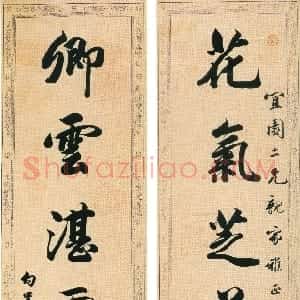 宜園二兄親家雅正
花氣芝
卿雲湛
Shufaziliao.com